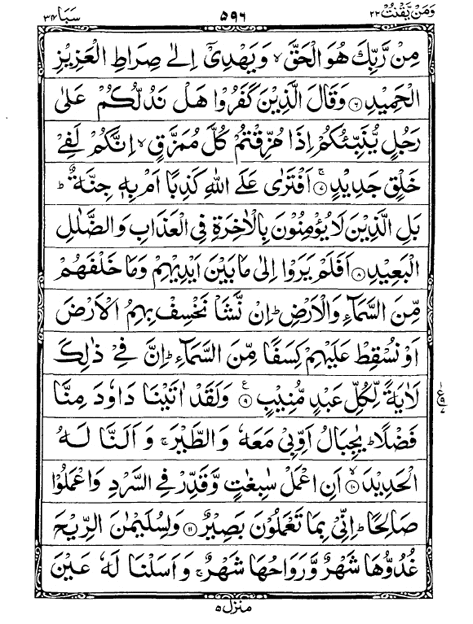 وَمَنْ يَّقْنُتْ ٢٢ ٥٩٦ سَبَا ٣٤
مِنْ رَّبِّكَ هُوَ الْحَقَّ ۙ وَيَهْدِيْۤ اِلٰى صِرَاطِ الْعَزِيْزِ
الْحَمِيْدِ ۝٦ وَقَالَ الَّذِيْنَ كَفَرُوْا هَلْ نَدُلُّكُمْ عَلٰى
رَجُلٍ يُّنَبِّئُكُمْ اِذَا مُزِّقْتُمْ كُلَّ مُمَزَّقٍ ۙ اِنَّكُمْ لَفِيْ
خَلْقٍ جَدِيْدٍ ۝٧ اَفْتَرٰى عَلَى اللّٰهِ كَذِبًا اَمْ بِهٖ جِنَّةٌ ؕ
بَلِ الَّذِيْنَ لَا يُؤْمِنُوْنَ بِالْاٰخِرَةِ فِي الْعَذَابِ وَالضَّلٰلِ
الْبَعِيْدِ ۝٨ اَفَلَمْ يَرَوْا اِلٰى مَا بَيْنَ اَيْدِيْهِمْ وَمَا خَلْفَهُمْ
مِّنَ السَّمَآءِ وَالْاَرْضِ ؕ اِنْ نَّشَاْ نَخْسِفْ بِهِمُ الْاَرْضَ
اَوْ نُسْقِطْ عَلَيْهِمْ كِسَفًا مِّنَ السَّمَآءِ ؕ اِنَّ فِيْ ذٰلِكَ
لَاٰيَةً لِّكُلِّ عَبْدٍ مُّنِيْبٍ ۝٩ وَلَقَدْ اٰتَيْنَا دَاوٗدَ مِنَّا
فَضْلًا ؕ يٰجِبَالُ اَوِّبِيْ مَعَهٗ وَالطَّيْرَ ۚ وَاَلَنَّا لَهُ
الْحَدِيْدَ ۝١٠ اَنِ اعْمَلْ سٰبِغٰتٍ وَّقَدِّرْ فِي السَّرْدِ وَاعْمَلُوْا
صَالِحًا ؕ اِنِّيْ بِمَا تَعْمَلُوْنَ بَصِيْرٌ ۝١١ وَلِسُلَيْمٰنَ الرِّيْحَ
غُدُوُّهَا شَهْرٌ وَّرَوَاحُهَا شَهْرٌ ۚ وَاَسَلْنَا لَهٗ عَيْنَ
منزل ٥